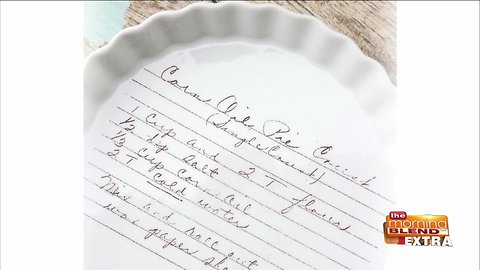 Corn Oil Pie Crust
(Single Crust)
1 Cup and 2 T flour
1/2 tsp salt
1/3 cup corn oil
2 T cold water
Mix and roll out
wax paper
the morning
BLEND
EXTRA